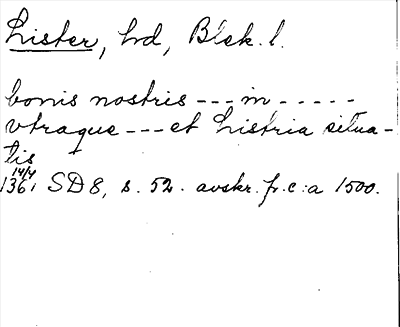 Lister, hd, Blek. l.
bonis nostris --- in -----
vtraque --- et Listria situa-
tis
14/4
1361 SD 8, s. 52. avskr. fr. c:a 1500.